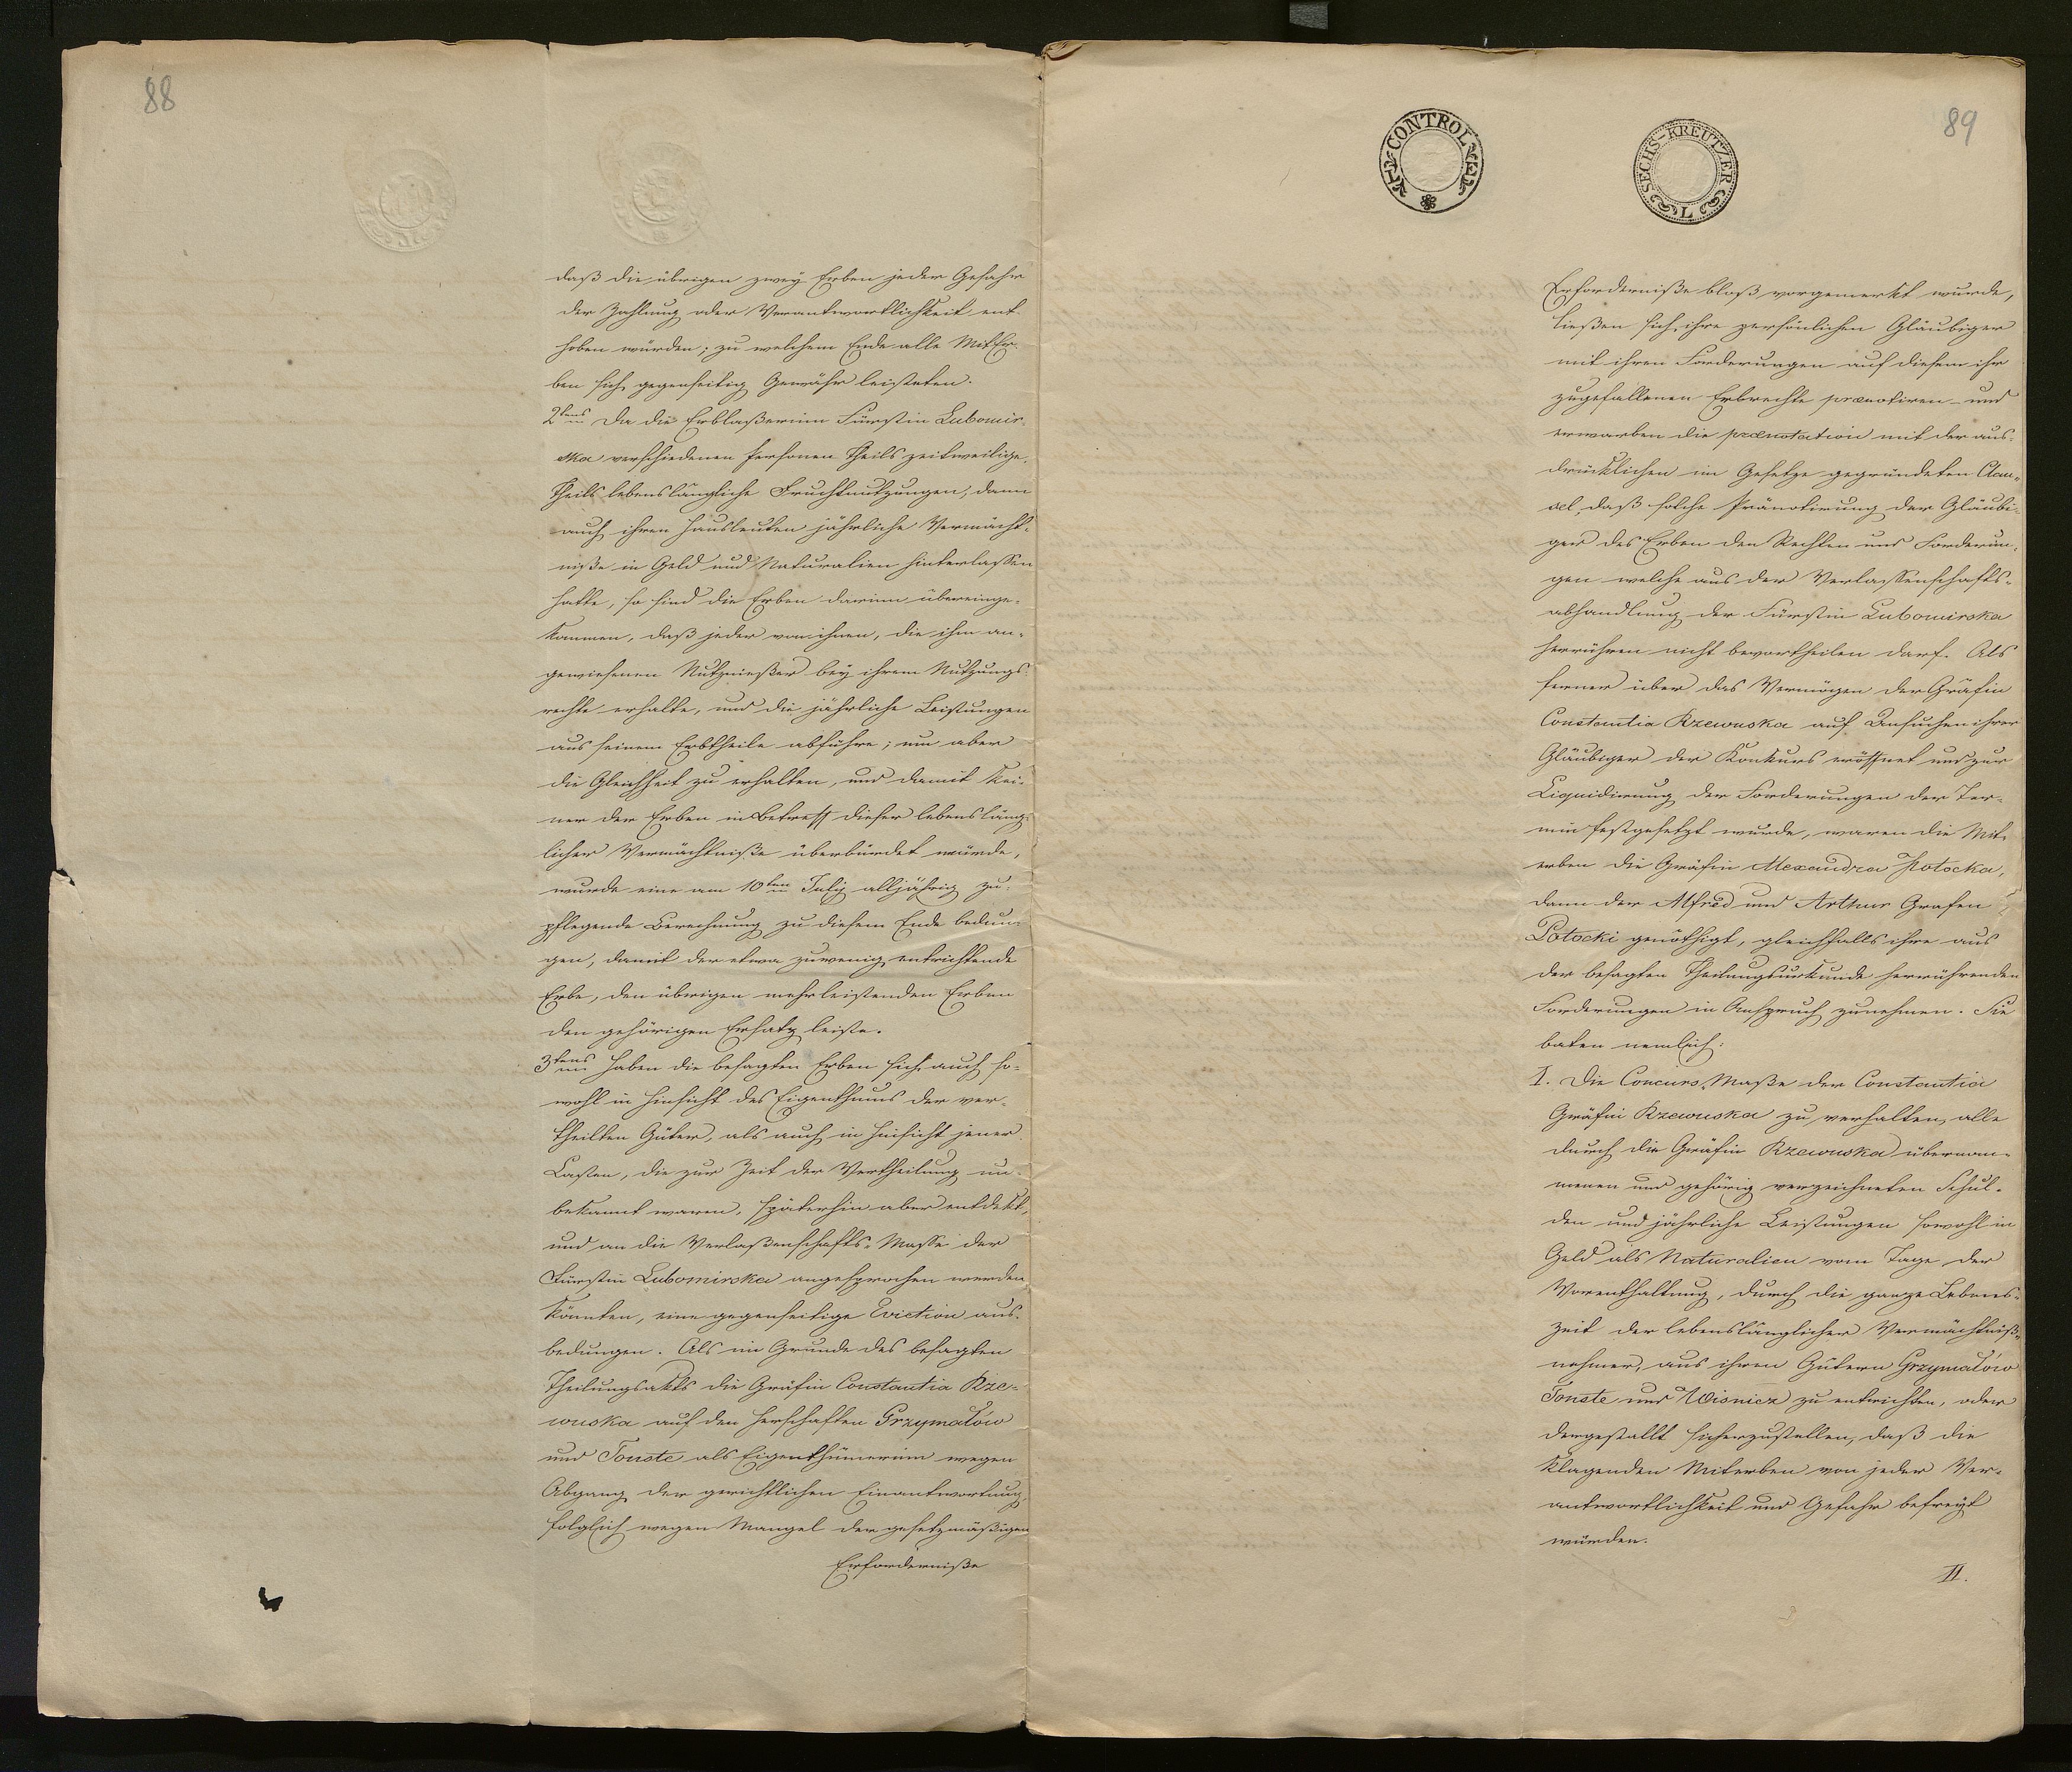 88
daß die übrigen zwey Erben jeder Gefahr
der Zahlung oder Verantwortlichkeit ent-
hoben würden; zu welchem Ende alle MitEr-
ben sich gegenseitig Gewähr leisteten.
2tens Da die Erblaßerinn Fürstin Lubomir-
ska verschiedenen Personen theils zeitweilige,
theils lebenslängliche Fruchtnutzungen, dann
auch ihren Hausleuten jährliche Vermächt-
niße in Geld und Naturalien hinterlassen
hatte, so sind die Erben darinn übereinge-
kommen, daß jeder von ihnen, die ihm an-
gewiesenen Nutznießer bey ihrem Nutzungs-
rechte erhalte, und die jährliche Leistungen
aus seinem Erbtheile abführe; um aber
die Gleichheit zu erhalten, und damit kei-
ner der Erben in Betreff dieser lebensläng-
licher Vermächtniße überbürdet würde,
wurde eine am 10ten July alljährig zu-
pflegende Berechnung zu diesem Ende bedun-
gen, damit der etwa zuwenig entrichtende
Erbe, den übrigen mehrleistenden Erben
den gehörigen Ersatz leiste.
3tens haben die besagten Erben sich auch so-
wohl in Hinsicht des Eigenthums der ver-
theilten Güter, als auch in Hinsicht jener
Lasten, die zur Zeit der Vertheilung un-
bekannt waren, späterhin aber entdekt,
und an die Verlaßenschafts-Masse der
Fürstin Lubomirska angesprochen werden
könnten, eine gegenseitige Eviction aus-
bedungen. Als im Grunde des besagten
Theilungsakts die Gräfin Constantia Rze-
wuska auf den Herschaften Grzymałów
und Touste als Eigenthümerinn wegen
Abgang der gerichtlichen Einantwortung,
folglich wegen Mangel der gesetzmäßigen
Erforderniße
CONTROL
SECHS-KREUTZER
L
89
Erforderniße bloß vorgemerkt wurde,
ließen sich ihre persönlichen Gläubiger
mit ihren Forderungen auf diesem ihr
zugefallenen Erbrechte prænotiren und
erwarben die prænotation mit der aus-
drücklichen im Gesetze gegründeten Clau-
sel, daß solche Pränotirung der Gläubi-
ger des Erben den Rechten und Forderun-
gen welche aus der Verlassenschafts-
abhandlung der Fürstin Lubomirska
herrühren nicht bevortheilen darf. Als
ferner über das Vermögen der Gräfin
Constantia Rzewuska auf Ansuchen ihrer
Gläubiger der Konkurs eröffnet und zur
Liquidirung der Forderungen der Ter-
min festgesetzt wurde, waren die Mit-
erben die Gräfin Alexandra Potocka,
dann der Alfred und Arthur Grafen
Potocki genöthigt, gleichfalls ihre aus
der besagten Theilungsurkunde herrührenden
Forderungen in Anspruch zunehmen. Sie
baten nemlich:
I. Die Concurs Maße der Constantia
Gräfin Rzewuska zu verhalten, alle
durch die Gräfin Rzewuska übernom-
menen und gehörig verzeichneten Schul-
den und jährliche Leistungen sowohl in
Geld als Naturalien vom Tage der
Vorenthaltung, durch die ganze Lebens-
zeit der lebenslänglicher Vermächtniß-
nehmer, aus ihren Gütern Grzymałów
Touste und Wisnicz zu entrichten, oder
dergestallt sicherzustellen, daß die
klagenden Miterben von jeder Ver-
antwortlichkeit und Gefahr befreyt
würden.
II.